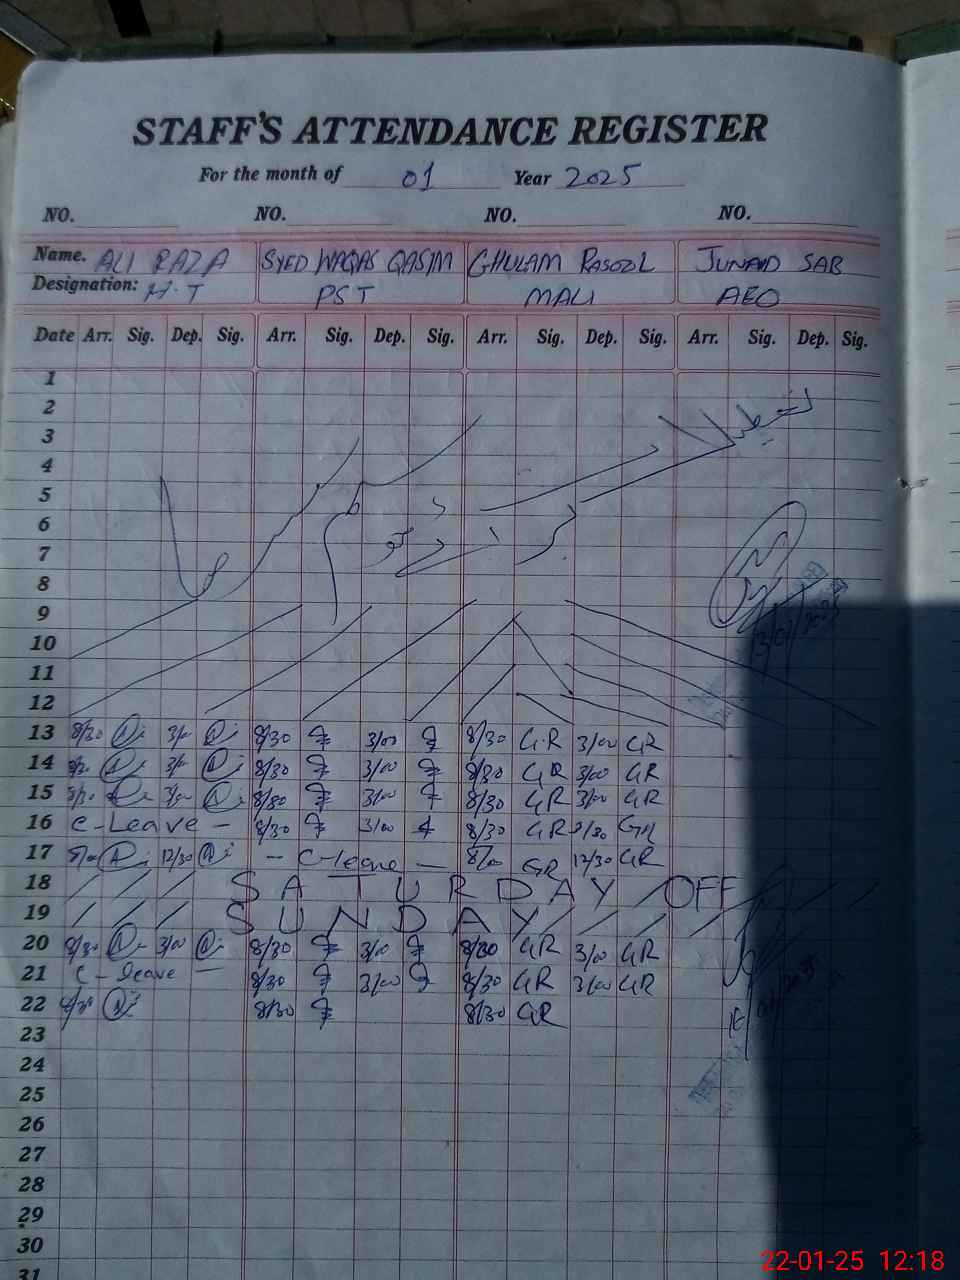 STAFF'S ATTENDANCE REGISTER
For the month of 01 Year 2025
NO. NO. NO. NO.
Name. ALI RAZA SYED WAQAS QASIM GHULAM RASOOL JUNAID SAB
Designation: H.T PST MALI AEO
Date Arr. Sig. Dep. Sig. Arr. Sig. Dep. Sig. Arr. Sig. Dep. Sig. Arr. Sig. Dep. Sig.
1
2
3
4
5
6
7
8
9
10
11
12
13 8/30 3/00 8/30 3/00 8/30 G.R 3/00 GR
14 8/30 3/00 8/30 3/00 8/30 GR 3/00 GR
15 8/30 3/00 8/30 3/00 8/30 GR 3/00 GR
16 C-Leave - 8/30 3/00 8/30 GR GR
17 8/00 12/30 - C-leave - 8/00 GR 12/30 GR
18 SATURDAY OFF
19 SUNDAY
20 8/30 3/00 8/30 3/00 8/30 GR 3/00 GR
21 C-leave - 8/30 3/00 8/30 GR 3/00 GR
22 8/30 8/30 8/30 GR
23
24
25
26
27
28
29
30
31
22-01-25 12:18